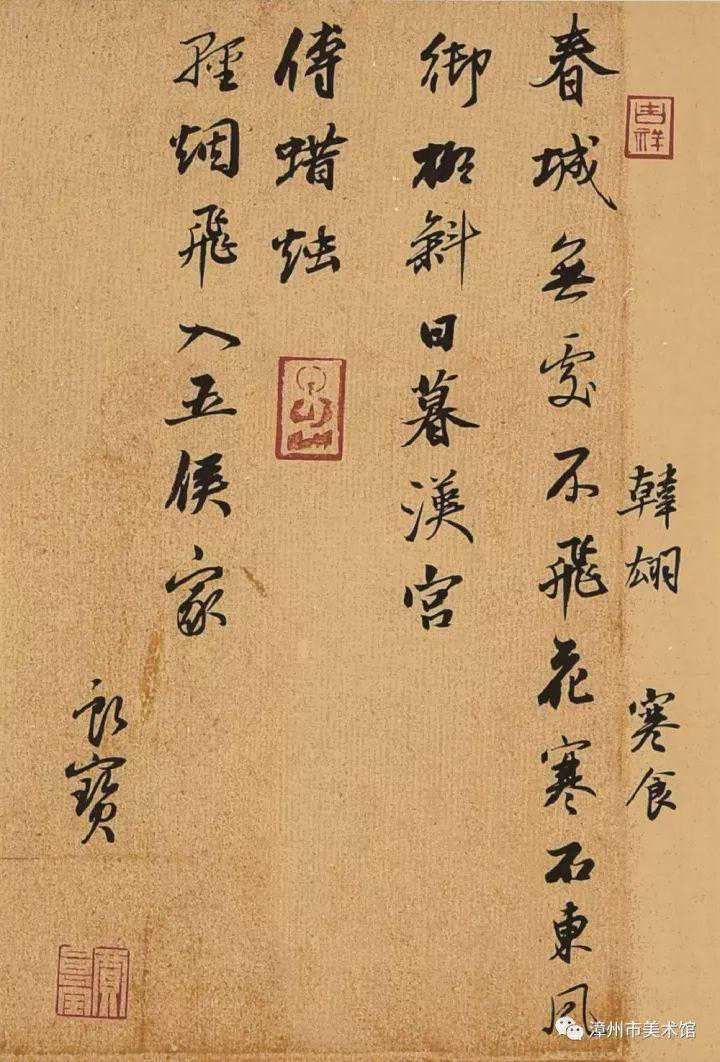 吉祥
韓翃 寒食
春城無處不飛花寒石東風
御柳斜日暮漢宮
傅蜡烛
輕烟飛入五侯家
寶
漳州市美术馆